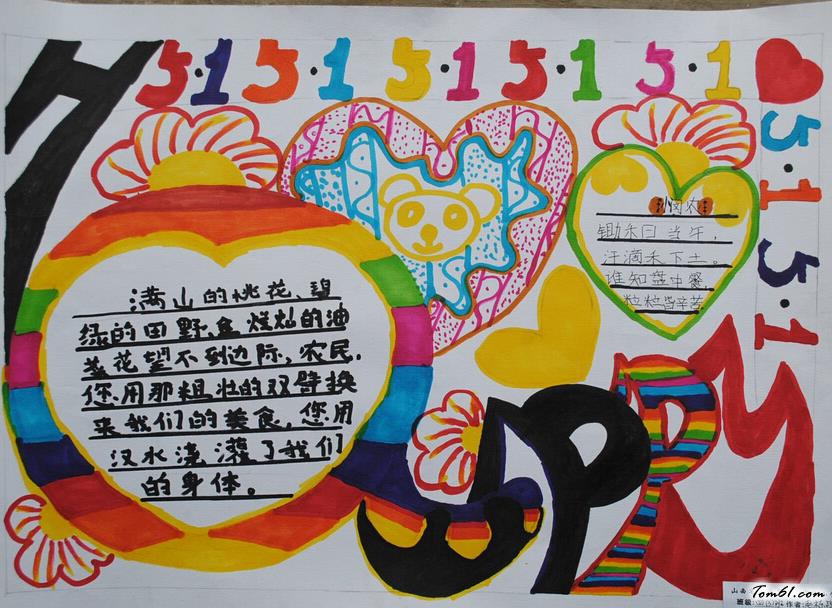 5·1 5·1 5·1 5·1 5·1
5·1
5·1
悯农
锄禾日当午，
汗滴禾下土。
谁知盘中餐，
粒粒皆辛苦
满山的桃花、碧
绿的田野、金灿灿的油
菜花望不到边际，农民，
您、用那粗壮的双臂换
来我们的美食，您用
汉水浇灌了我们
的身体。
HAPPY
Tom61.com